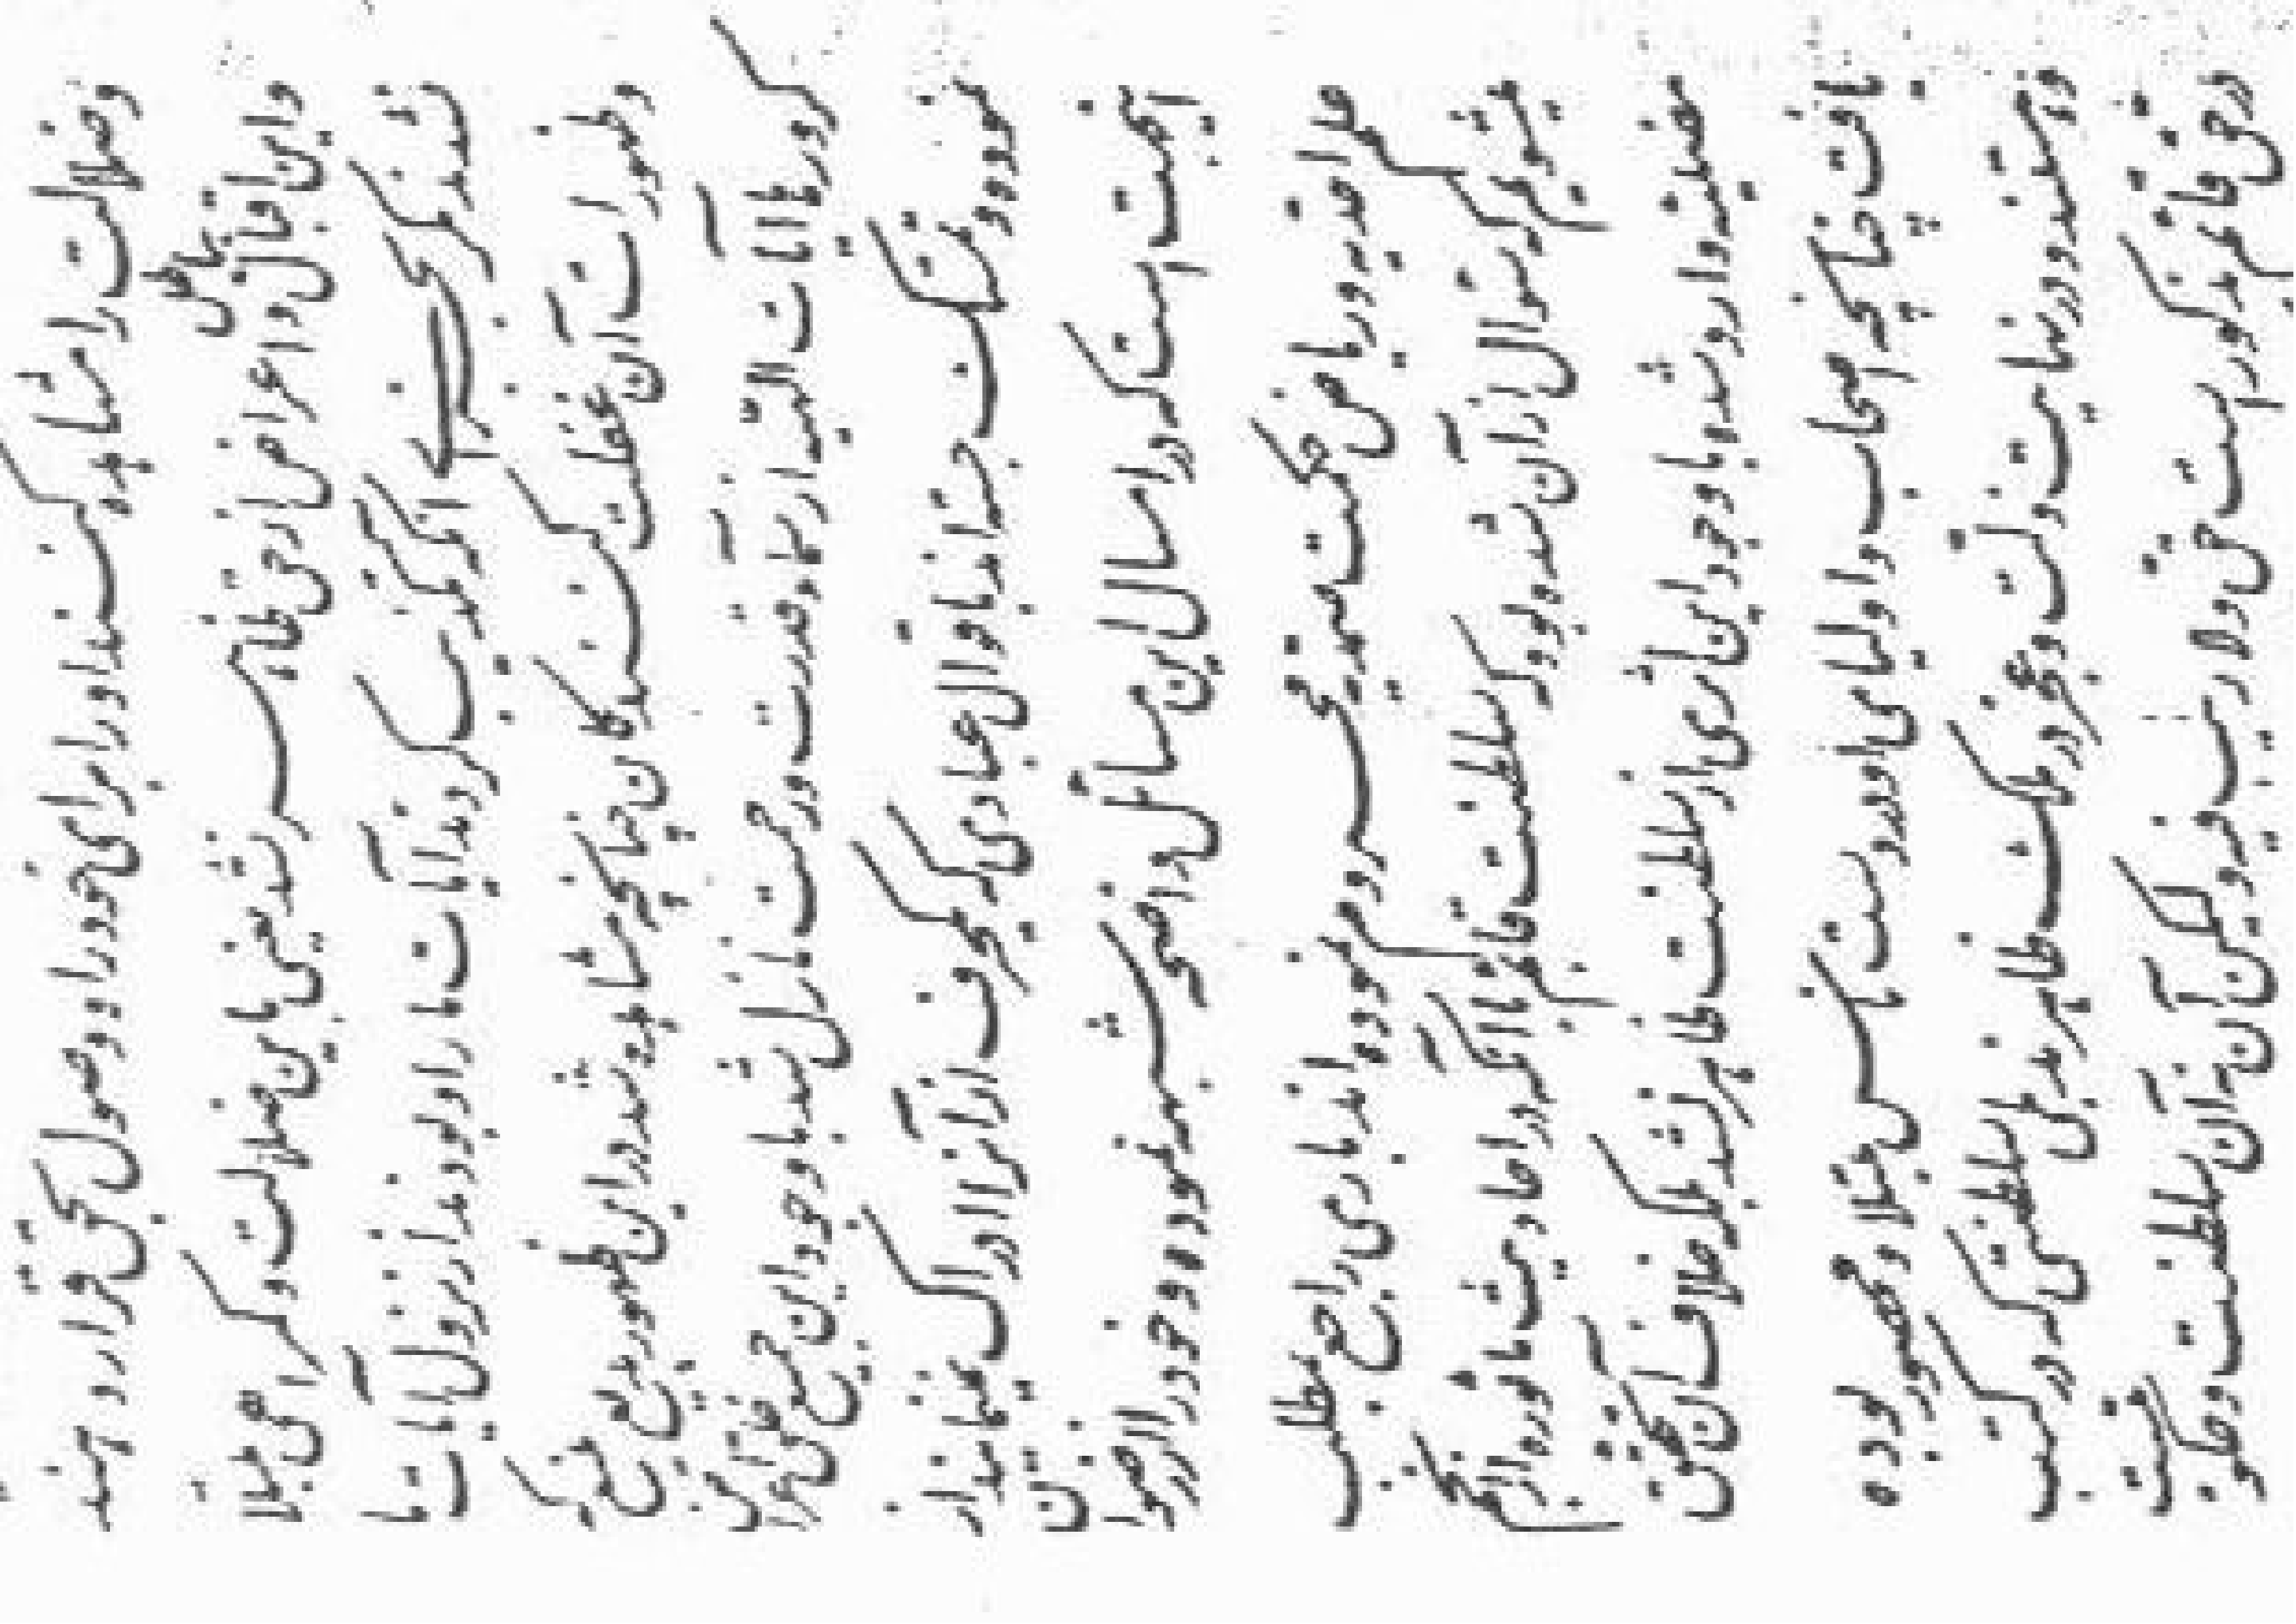 وضلالت را مشاهده کنند او را برای خود راه وصول بحق قرار دهند
و این اقبال بباطل و اعراض از حق ظاهر نشد یعنی باین ضلالت و گمراهی مبتلا
نشدند مگر بجزای آنکه تکذیب کردند آیات ما را و بودند از نزول آیات ما
و ظهورات آن غفلت کنندگان چنانچه مشاهده شد در این ظهور بدیع منیع که
کرورها آیات الهیه از سماء قدرت و رحمت نازل شد با وجود این جمیع خلق اعراض
نموده و تمسک جسته اند باقوال عبادی که یکحرف از آنرا ادراک نمینمایند از
اینجهت است که در امثال این مسائل واضحه شبهه نموده و خود را از رضوان
علم احدیه و ریاض حکمت صمدیه محروم نموده اند باری راجع بمطلب
میشویم که سؤال از آن شده بود که سلطنت قائم با آنکه در احادیث مأثوره از انجم
مضیئه وارد شده با وجود این اثری از سلطنت ظاهر نشد بلکه خلاف آن تحقق
یافت چنانچه اصحاب و اولیای او در دست ناس مبتلا و محصور بوده
و هستند و در نهایت ذلت و عجز در ملک ظاهرند بلی سلطنتی که در کتب
در حق قائم مذکور است حق و لا ریب فیه ولکن آن نه آن سلطنت و حکومتیست